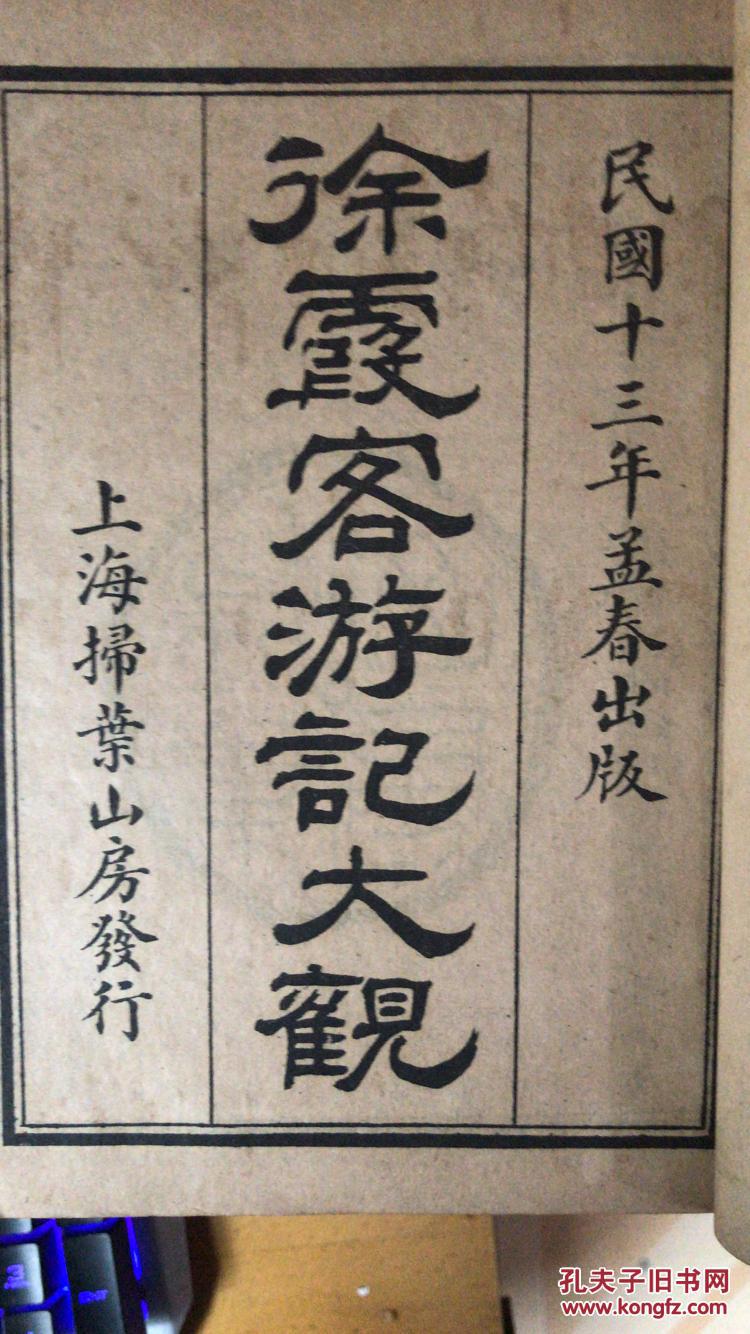 民國十三年孟春出版
徐霞客游記大觀
上海掃葉山房發行
3
孔夫子旧书网
www.kongfz.com